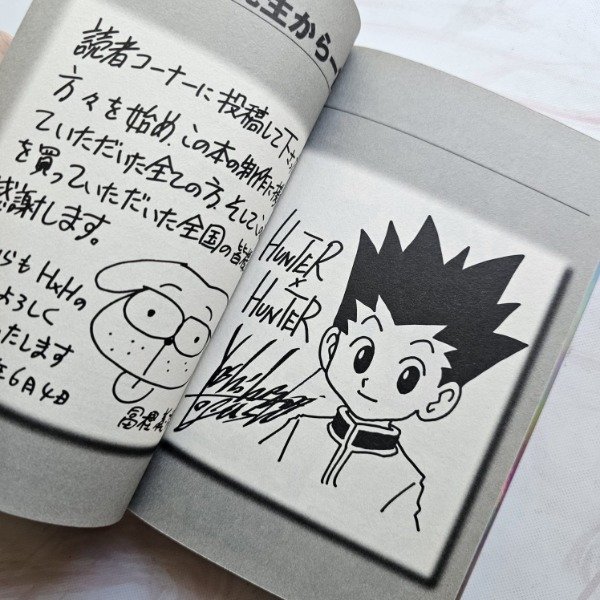 生から
読者コーナーに投稿して下さ
方々を始め、この本の制作に
ていただいた全ての方、そして
を買っていただいた全国の皆
感謝します。
らも H×Hの
よろしく
たします
年6月4日
冨樫
HUNTER
×
HUNTER
Yoshihiro
Togashi